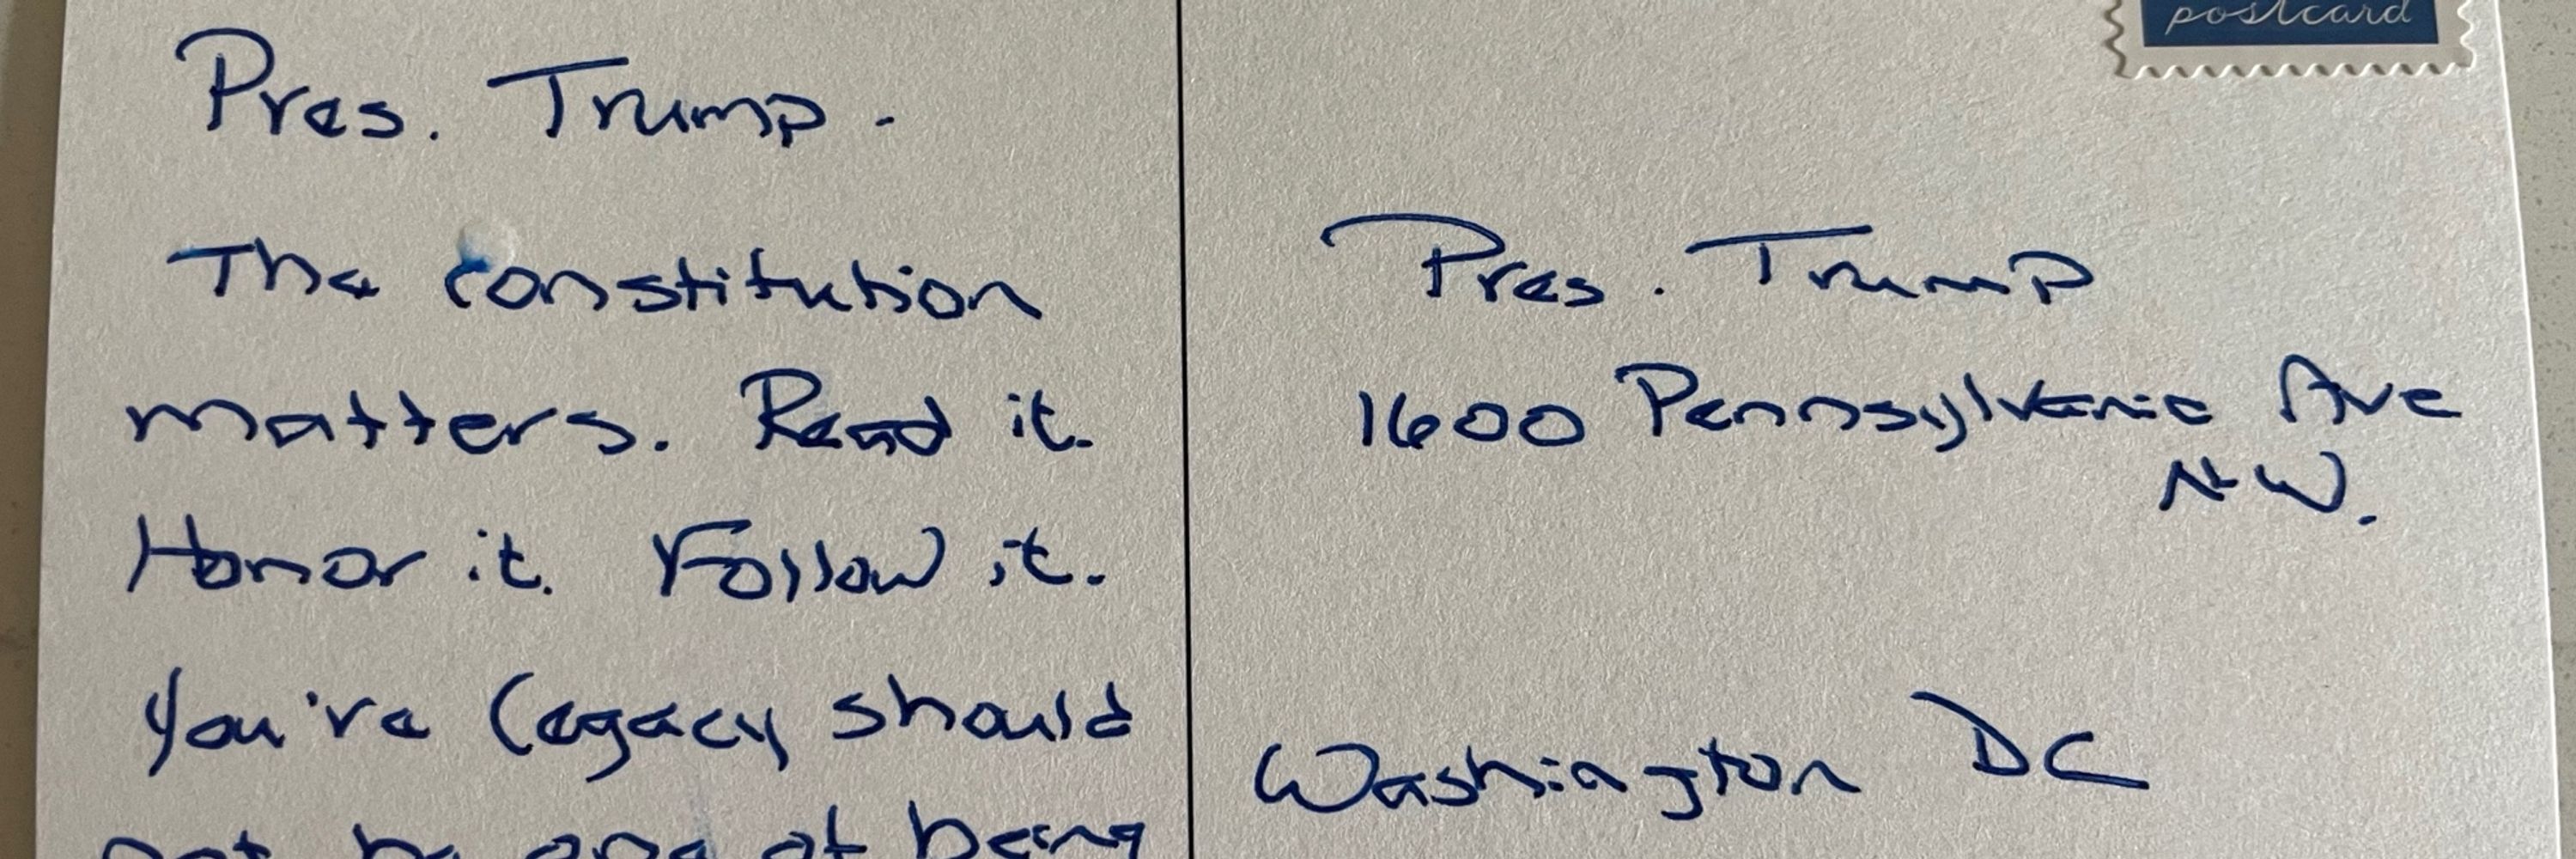 Pres. Trump.
The constitution
matters. Read it.
Honor it. Follow it.
You've legacy should
not be one of being
postcard
Pres. Trump
1600 Pennsylvania Ave
NW.
Washington DC